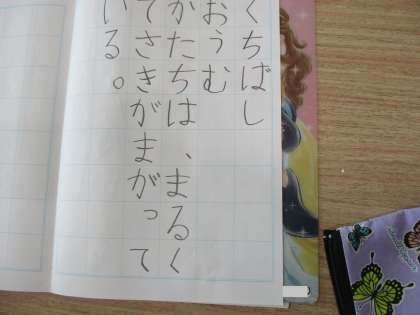 くちばし
おうむ
かたちは、まるく
てさきがまがって
いる。